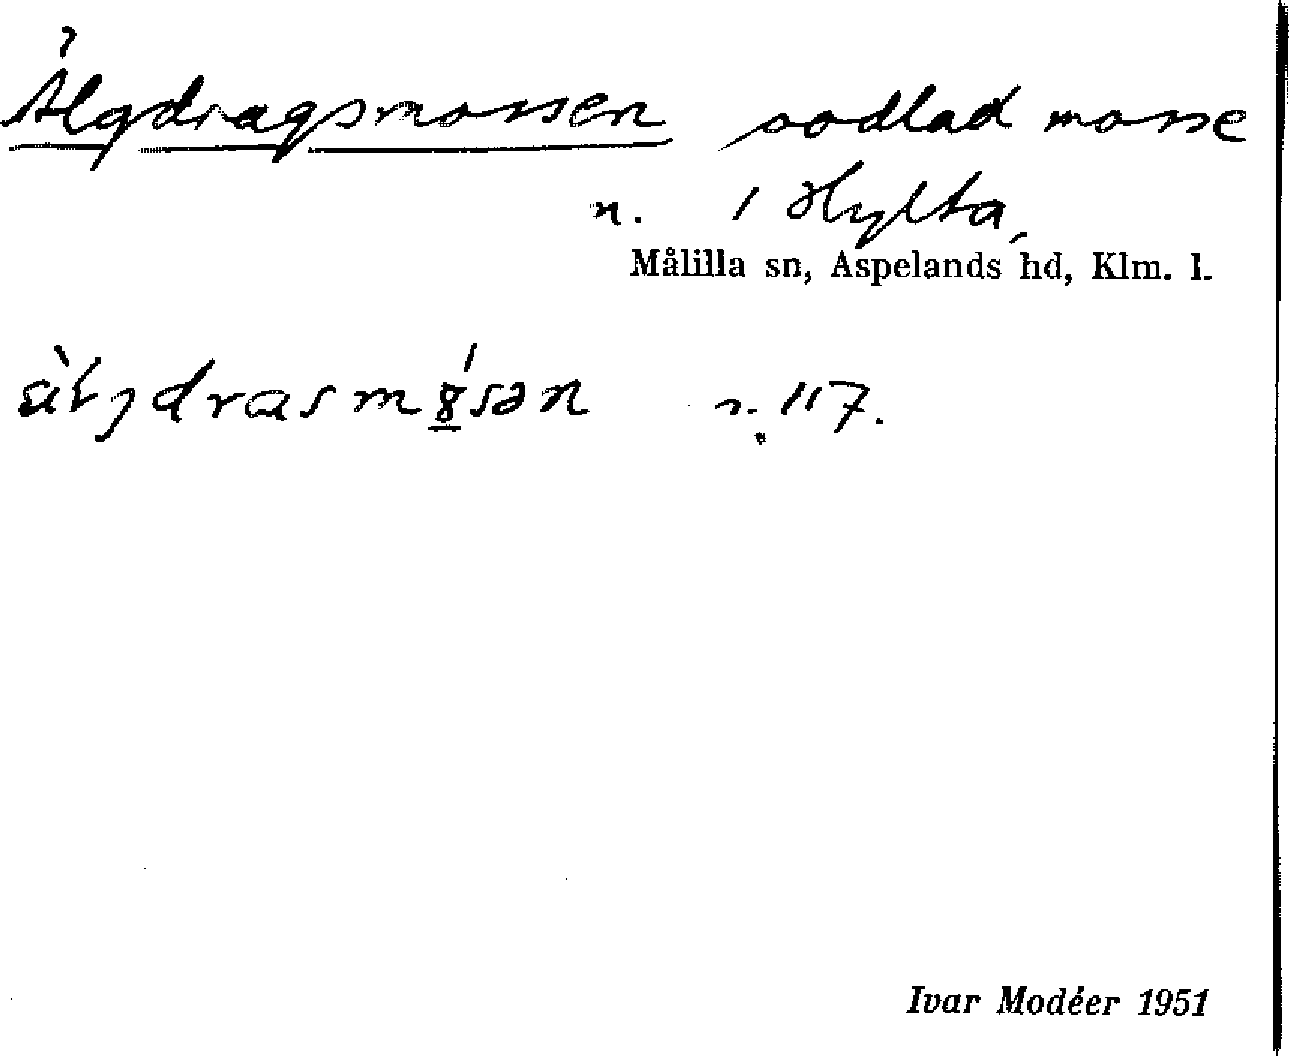 Älgdragsmossen oodlad mosse
n. 1 Hylta,
Målilla sn, Aspelands hd, Klm. l.
n. 117.
Ivar Modéer 1951